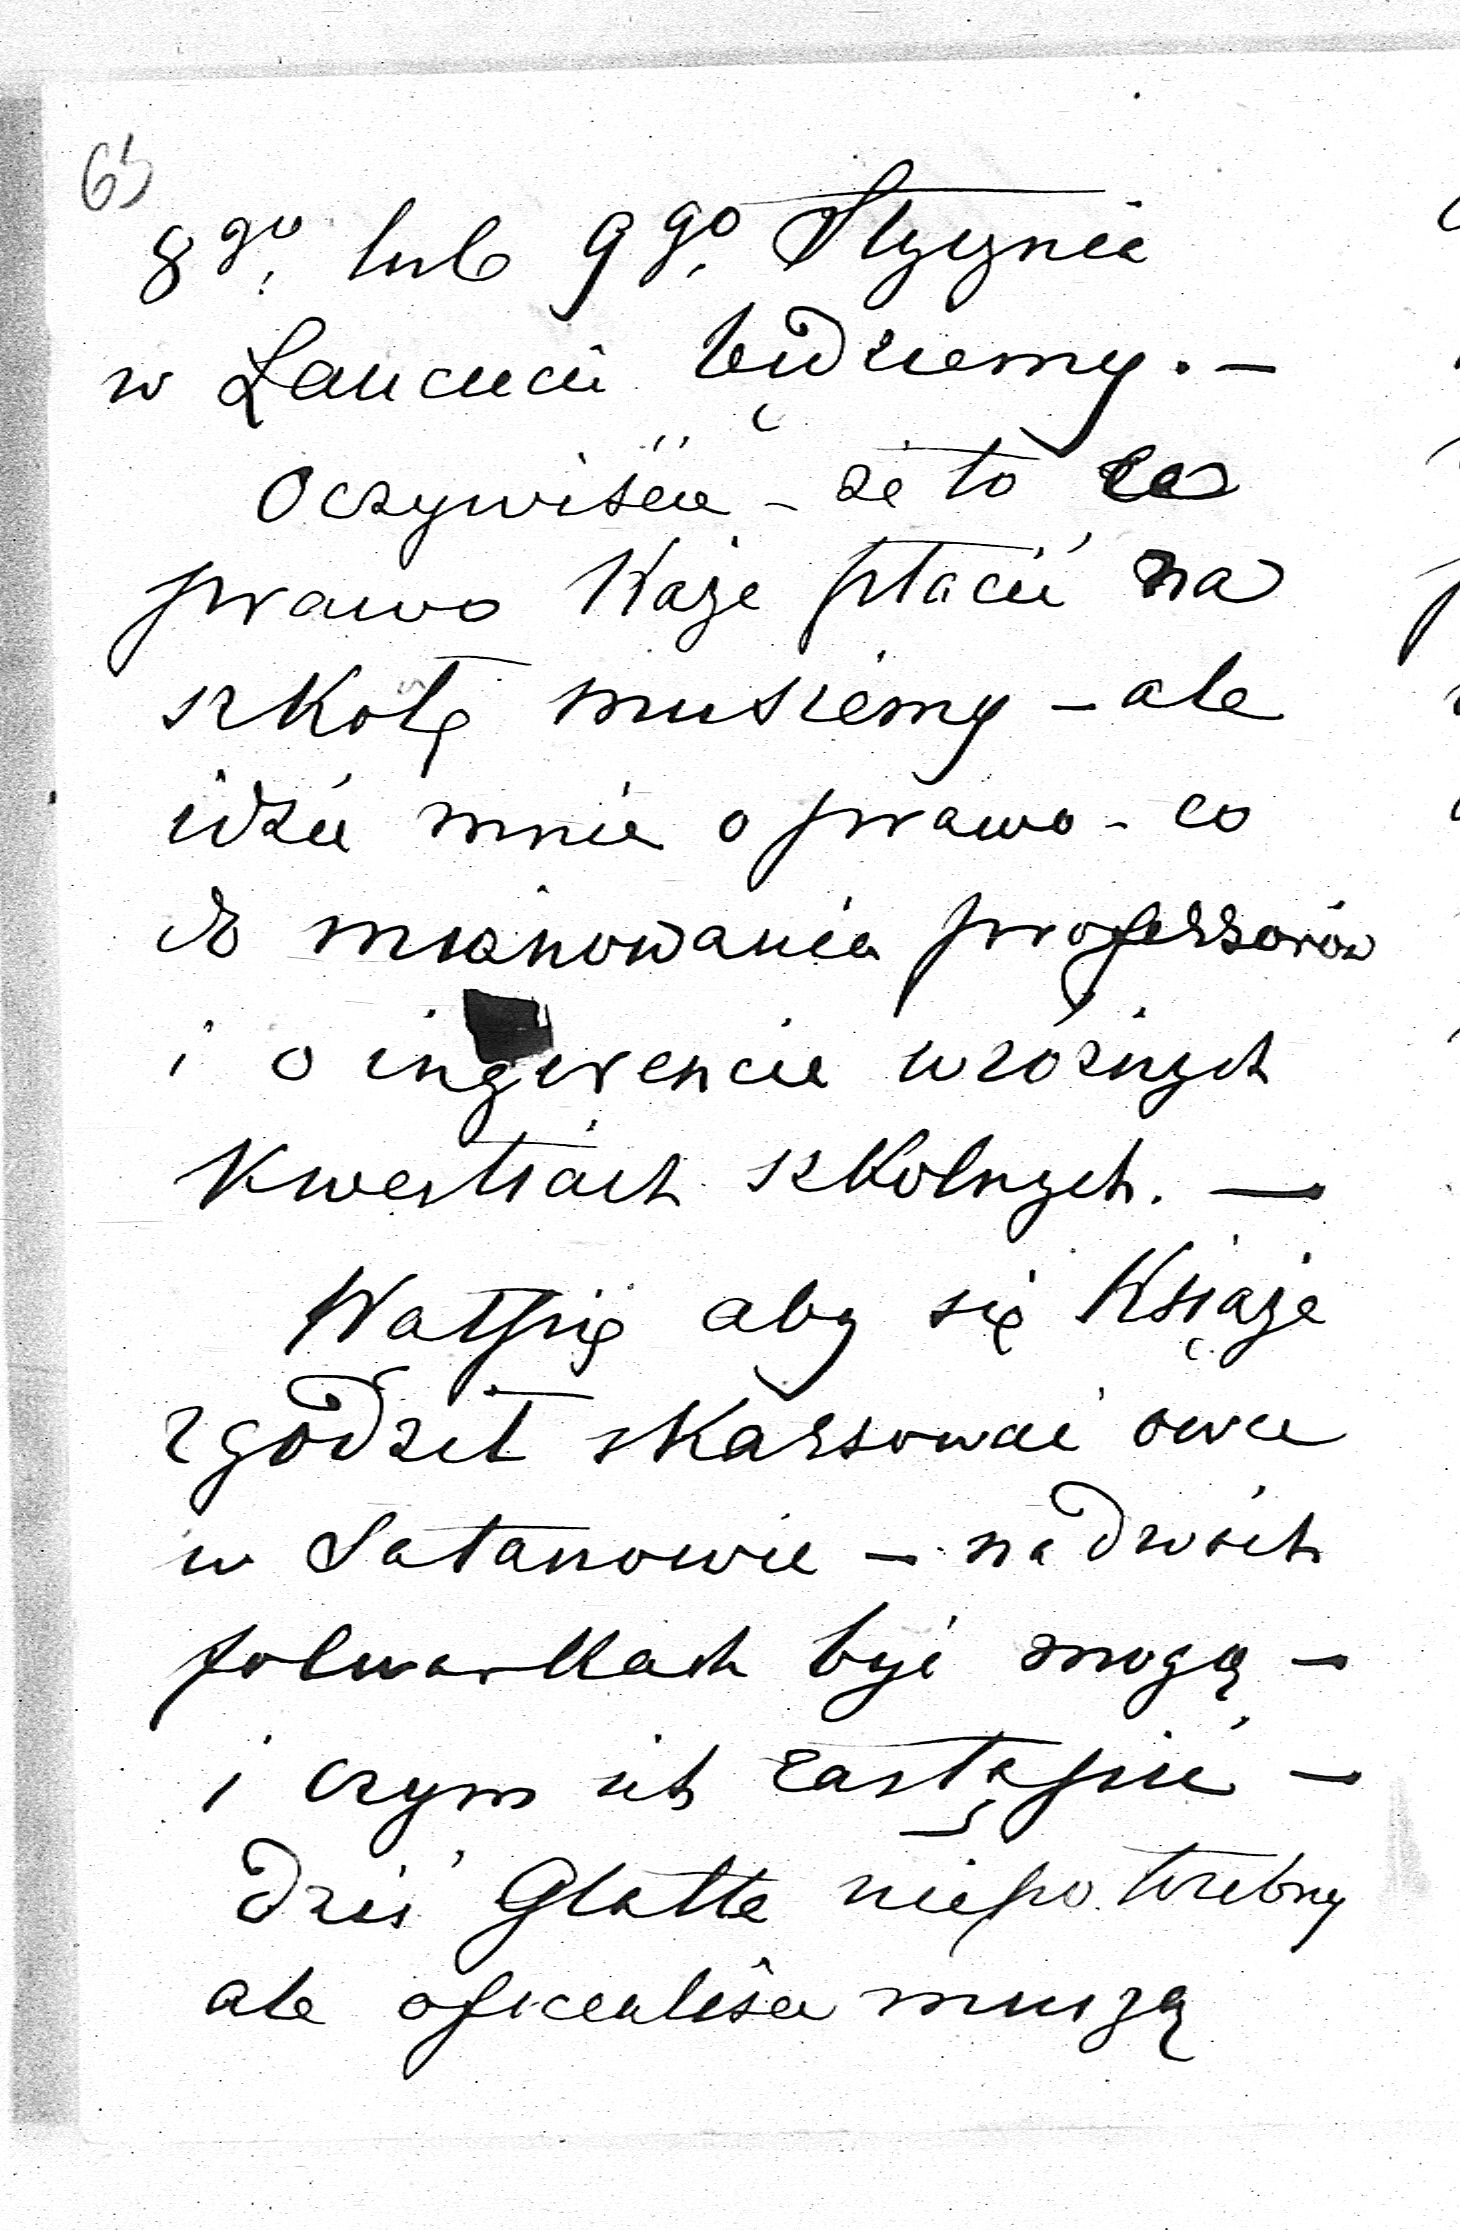 65
8go. lub 9go. Stycznia
w Łańcucie będziemy. –
Oczywiście – że to co
prawo każe płacić na
szkołę musiemy – ale
idzie mnie o prawo – co
do mianowania professorów
i o ingerencie w różnych
kwestiach szkolnych. —
Wątpię aby się Książe
zgodził skassować owce
w Satanowie – na dwóch
folwarkach być mogą –
i czym ich zastąpić –
dziś Glatte niepotrzebny
ale oficealiści muszą